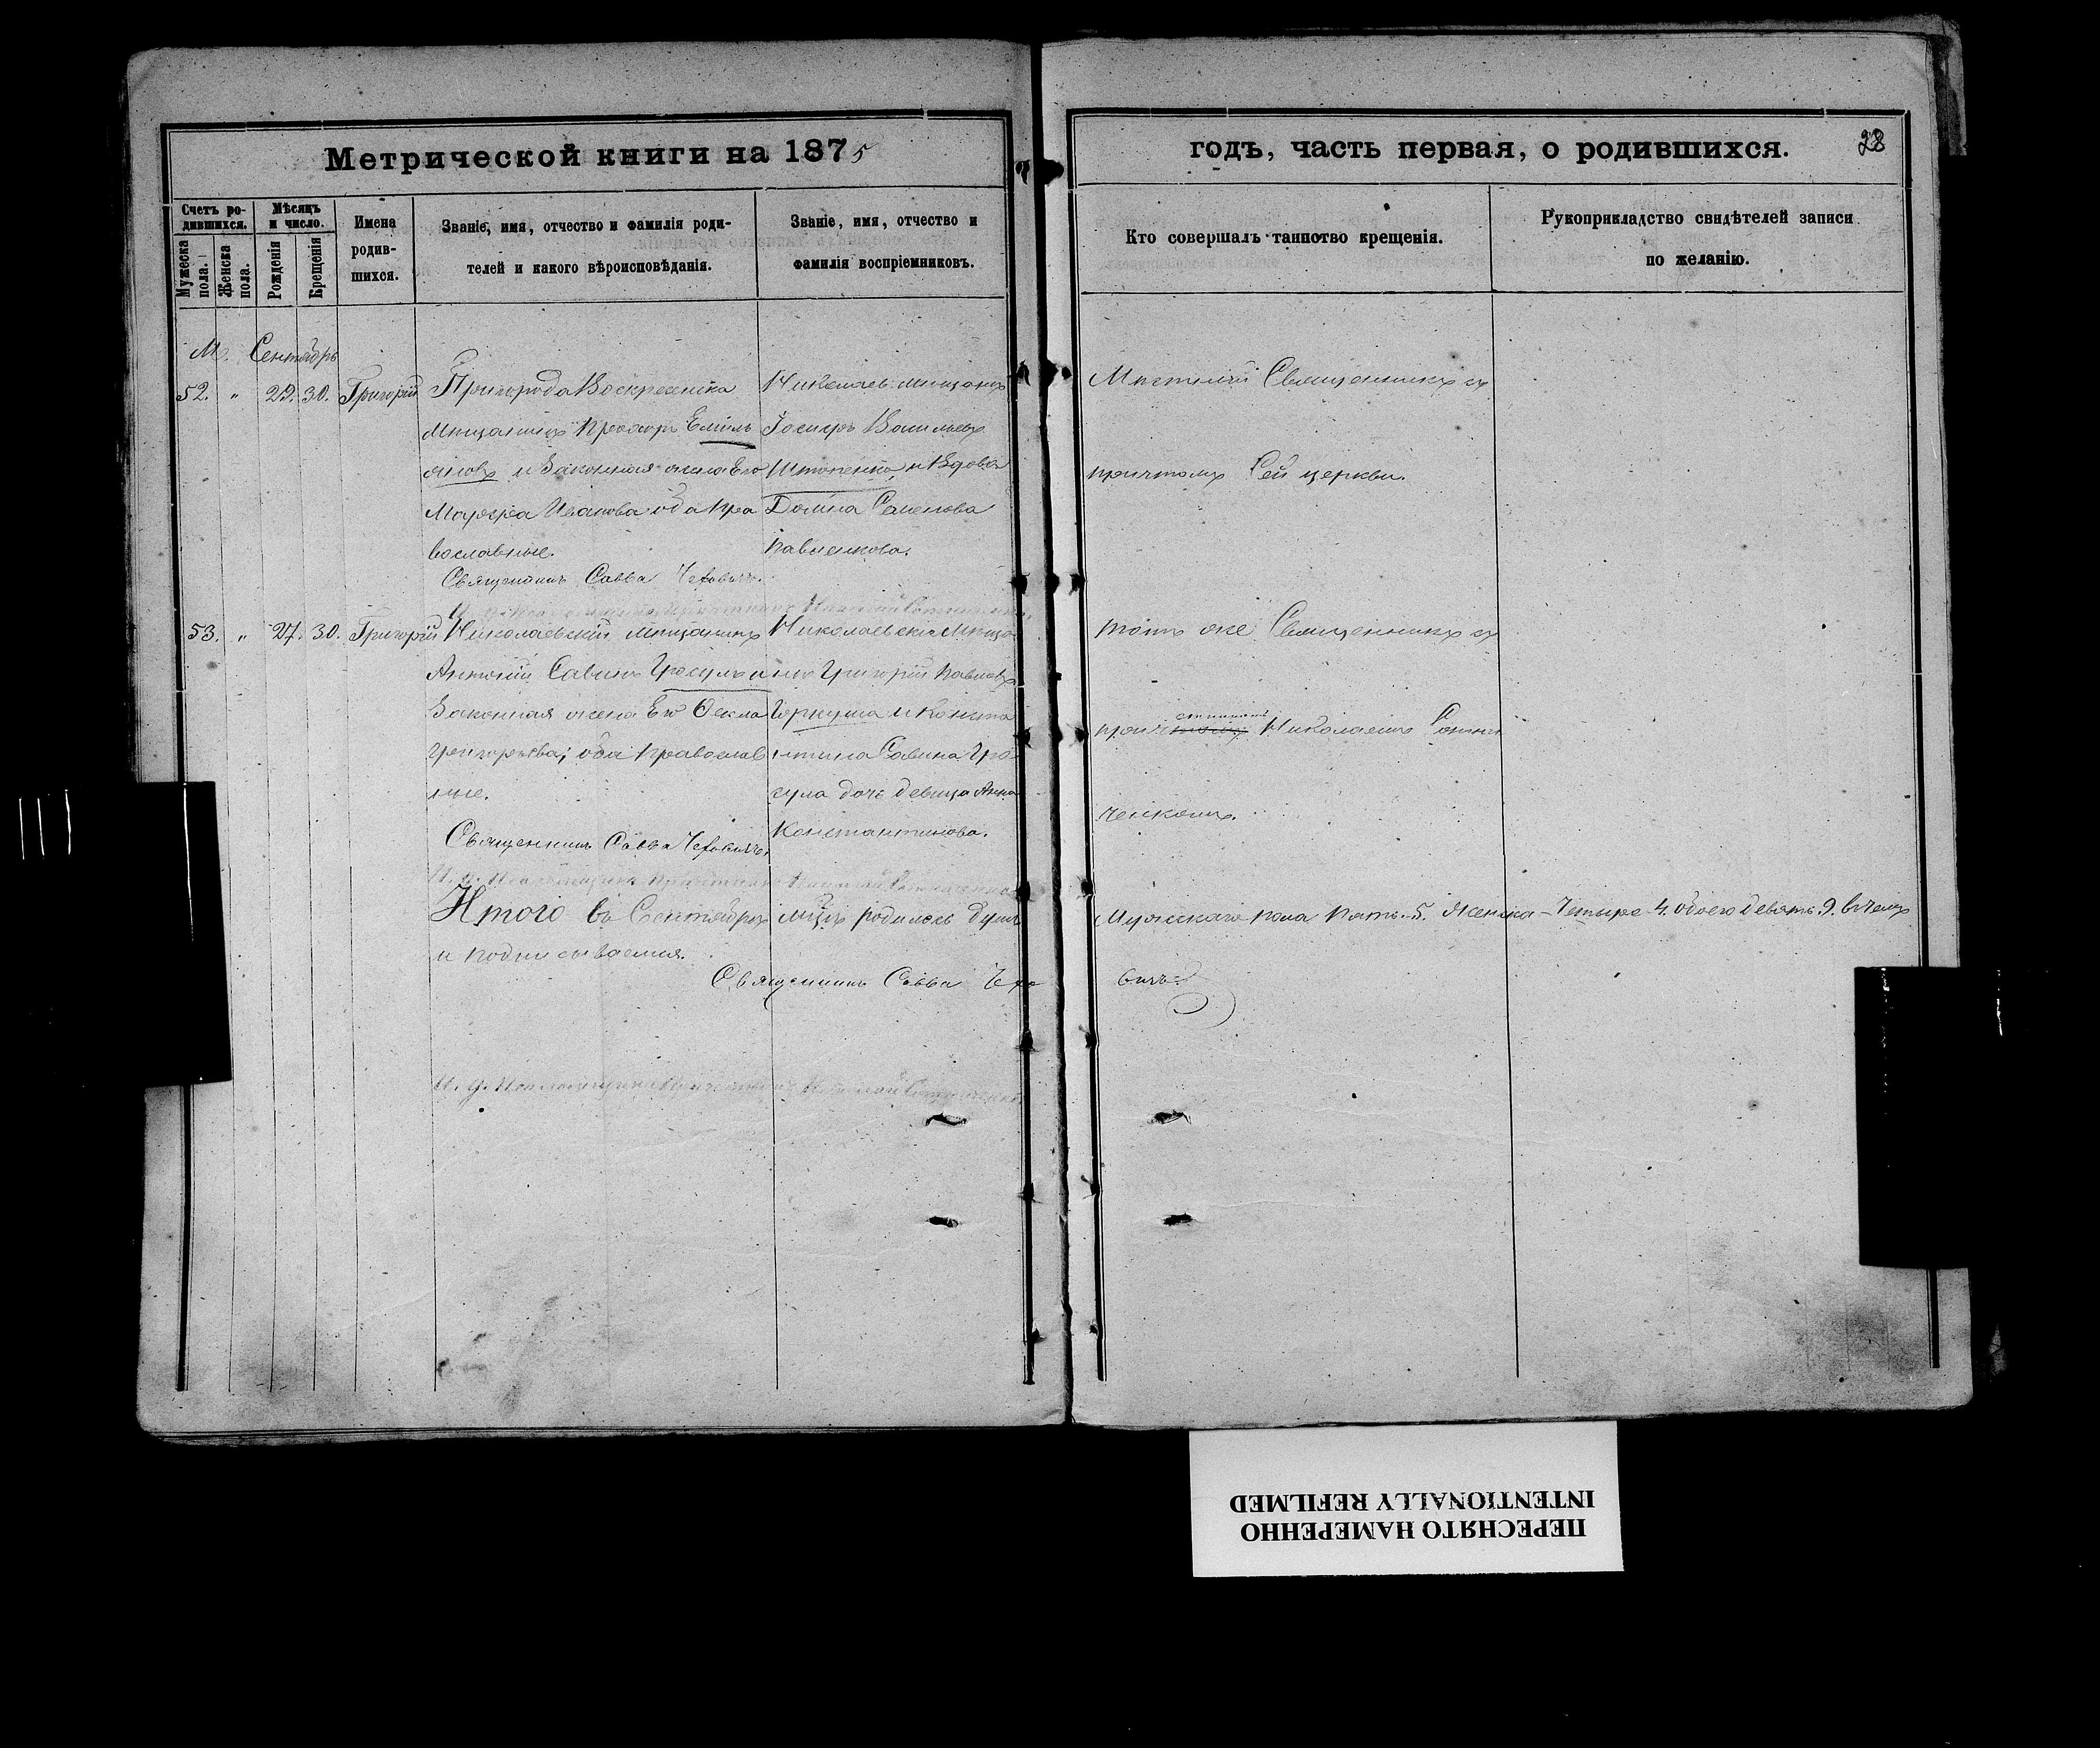 Метрической книги на 1875
годъ, часть первая, о родившихся.
28
Счетъ ро-
дившихся.
Мужеска
пола.
Женска
пола.
Мѣсяцъ
и число.
Рожденія
Крещенія
Имена
родив-
шихся.
Званіе, имя, отчество и фамилія роди-
телей и какого вѣроисповѣданія.
Званіе, имя, отчество и
фамилія воспріемниковъ.
Кто совершалъ таинство крещенія.
Рукоприкладство свидѣтелей записи
по желанію.
М. Сентябрь
52. " 29. 30. Григорій
Пригорода Воскресенска
мѣщанинъ Емель
яновъ и законная жена Его
Марфа Иванова оба пра
вославные.
Священникъ Савва
Николаев. мѣщанинъ
Іосифъ Васильевъ
и вдова
Домна Семенова
Павленкова.
Мѣстный Священникъ съ
причтомъ Сей церкви.
53. " 27. 30. Григорій
Николаевскій мѣщанинъ
Антоній Савинъ Гросулъ и
Законная жена Его Ѳекла
Григорьева; оба православ
ные.
Священникъ Савва
Николаевскій мѣща
нинъ Григорій Павловъ
и Конста
нтина Савина Гро
сула дочь девица Анна
Константинова.
тотъ же Священникъ съ
Николаемъ Сотни
ческимъ.
Итого въ Сентябрѣ мцѣ родилось душъ
Мужскаго пола пять 5. Женска - Четыре 4. обоего девять. 9. въ чемъ
и подписываемся.
Священникъ Савва
вичъ
ПЕРЕСНЯТО НАМЕРЕННО
INTENTIONALLY REFILMED